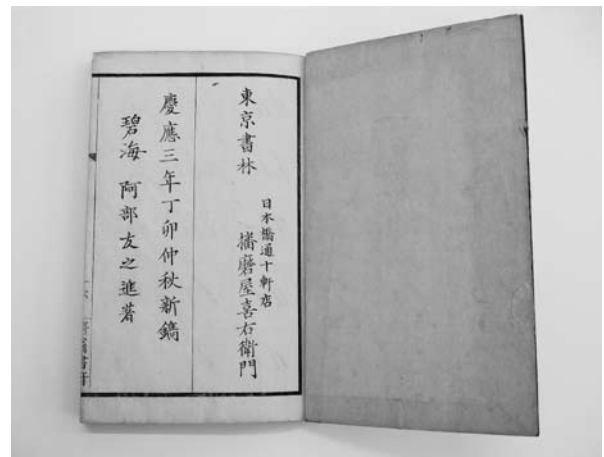 東京書林
日本橋通十軒店
播磨屋喜右衛門
慶應三年丁卯仲秋新鐫
碧海 阿部友之進著